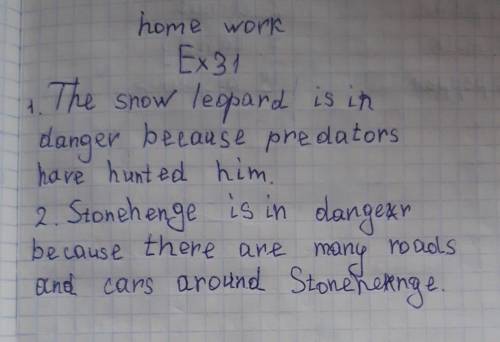 home work
Ex31
1. The snow leopard is in
danger because predators
have hunted him.
2. Stonehenge is in danger
because there are many roads
and cars around Stonehenge.